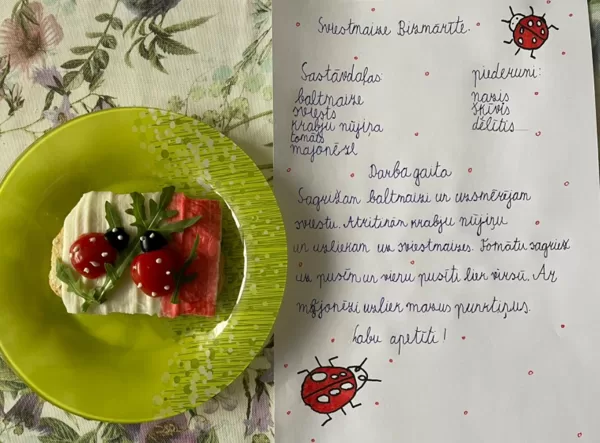 Sviestmaize Bizmārīte.
Sastāvdaļas
baltmaize
sviests
krabju nūjiņa
tomāts
majonēze
piederumi:
nazis
šķīvis
dēlītis
Darba gaita
Sagriežam baltmaizi un uzsmērējam
sviestu. Atritinām krabju nūjiņu
un uzliekam uz sviestmaizes. Tomātu sagriež
uz pusēm un vienu pusīti liek virsū. Ar
majonēzi uzliek mazus punktiņus.
Labu apetīti!